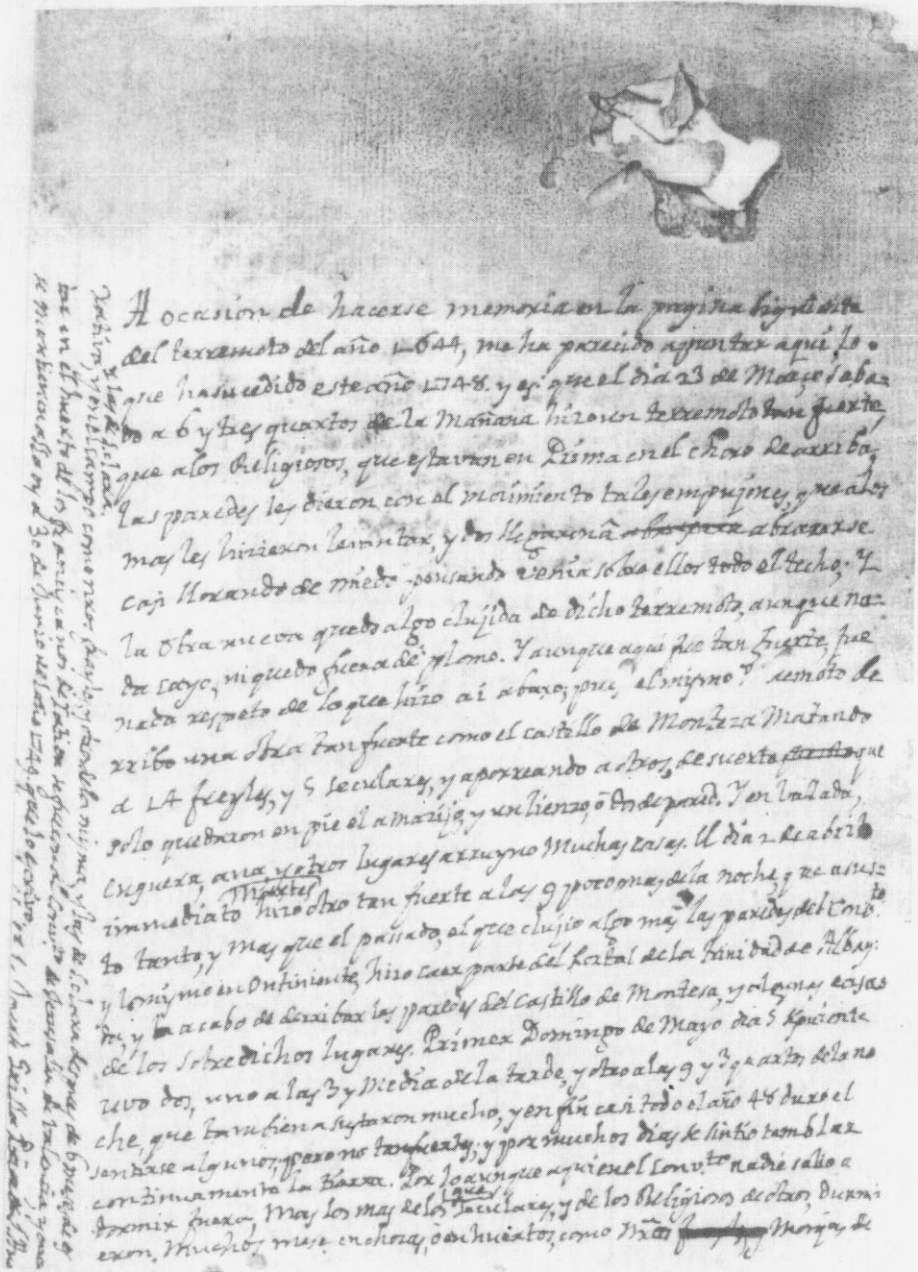 A ocasion de hacerse memoria en la pagina siguiente
del terremoto del año 1644, me ha pareuido apuntar aqui lo
que ha suçedido este año 1748. y es, que el dia 23 de Março saba-
do a 6 y tres quartos de la Mañana hizo un terremoto tan fuerte,
que a los Religiosos, que estavan en Prima en el choro de arriba,
las paredes les dieron con el movimiento tales empujones, que a los
mas les hizieron levantar, y dos abrazarse
casi llorando de miedo pensando venia sobre ellos todo el techo; Y
la obra nueva quedo algo clujida de dicho terremoto, aunque na-
da cayo, ni quedo fuera de plomo. Y aunque aqui fue tan fuerte, fue
nada respeto de lo que hizo ai abaxo; pues el mismo de
rribo una obra tan fuerte como el castillo de Monteza Matando
a 14 freyles, y 5 seculares, y aporreando a otros, de suerte que
solo quedaron en pie el amarijo, y un lienzo, o dos de pared. Y en
Enguera, Anna, y otros lugares arruyno Muchas casas. El dia 2 de abril
immediato Martes hizo otro tan fuerte a las 9 poco mas de la noche, que asus-
to tanto, y mas que el passado, el que clujio algo mas las paredes del Convto.
y lo mismo en Ontiniente, hizo caer parte del de la Trinidad de Albay-
da, y acabo de derribar las paredes del Castillo de Montesa, y algunas casas
de los sobredichos lugares. Primer Domingo de Mayo dia 5 siguiente
uvo dos, uno a las 3 y Media de la tarde, y otro a las 9 y 3 quartos de la no
che, que tambien asustaron mucho, y en fin casi todo el año 48 duro el
sentirse algunos, pero no tan fuertes; y por muchos dias se sintio temblar
continuamente la tierra. Por lo que aunque aqui en el Convte. nadie salio a
dormir fuera, Mas los mas de los seculares, y de los Religiosos de otros, durmi
eron, Muchos meses en chozas, o en huertos, como Nras Monjas de
Xativa, y en el campo como nros frayles, y las de S. Clara despues de 6 meses de es
tar en el huerto de los franciscanos de Xativa se fueron al Convto de Jerusalen de Valencia, y
se mantienen alli oy a 30 de Junio del año 1749 que lo escrivo.